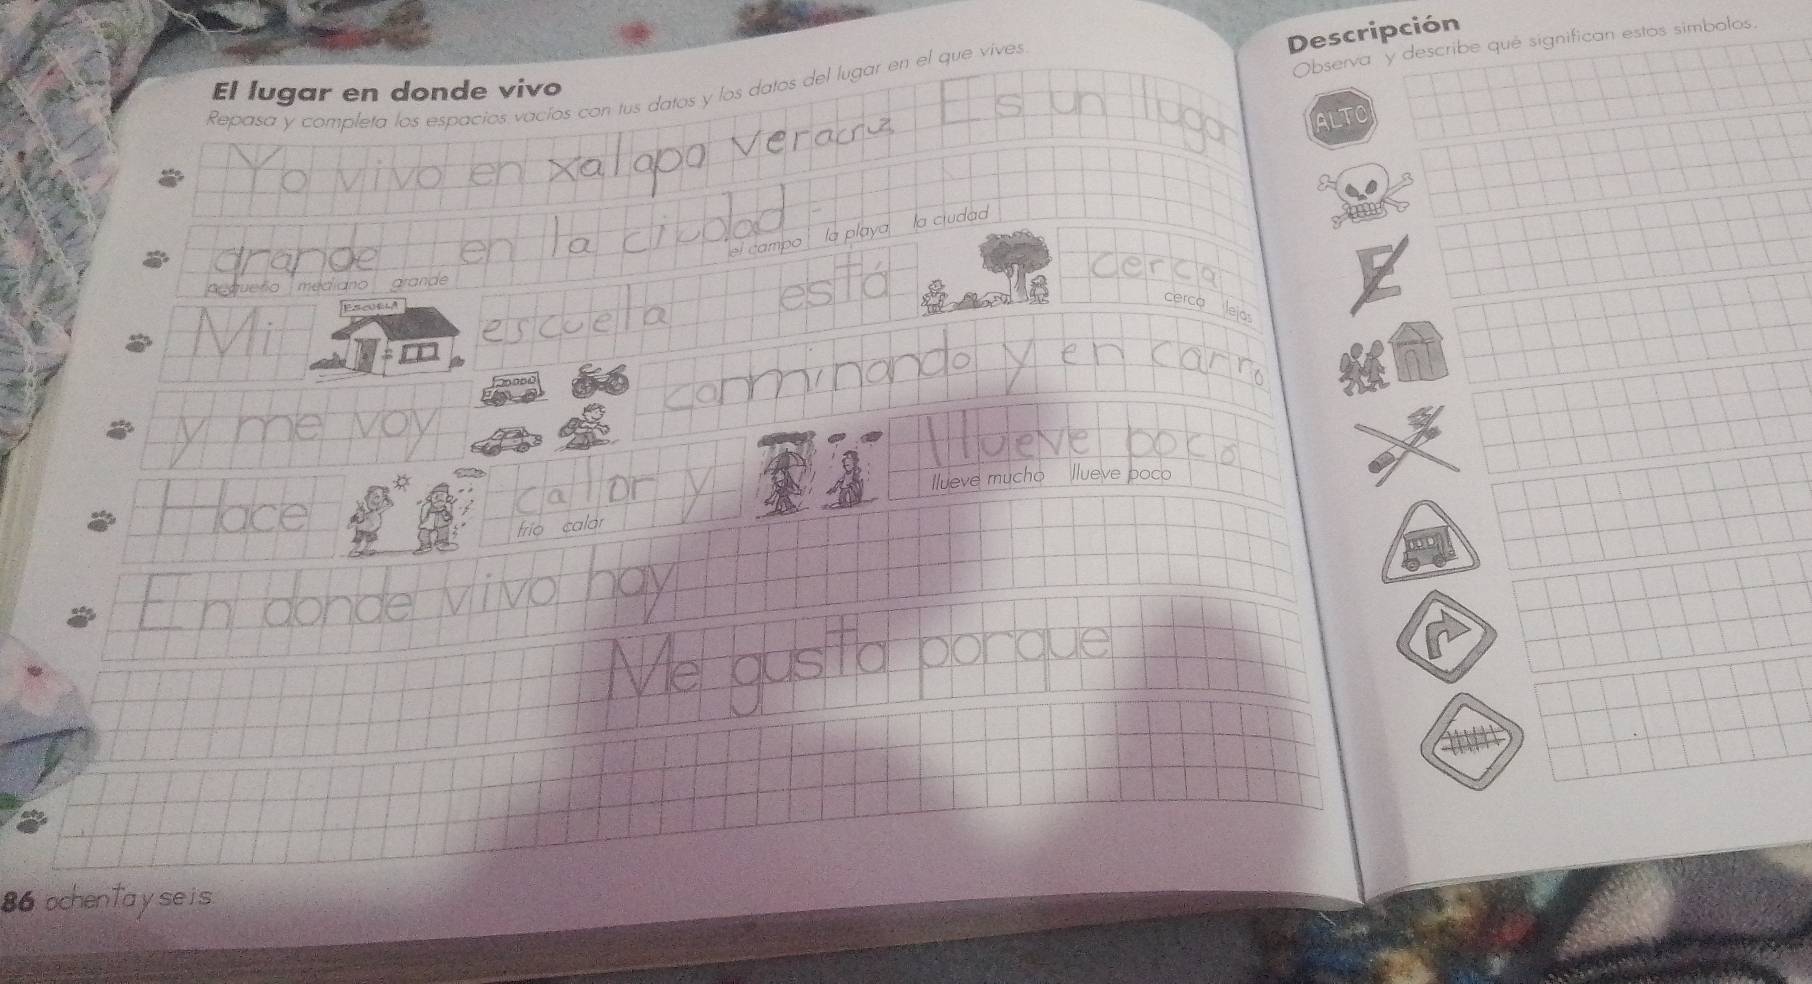 El lugar en donde vivo
Repasa y completa los espacios vacíos con tus datos y los datos del lugar en el que vives.
Yo vivo en xalapa veracruz Es un lugar
grande en la ciudad
pequeño mediano grande el campo la playa la ciudad
ESCUELA
Mi escuela está cerca
cerca lejos
y me voy camminando y en carro
Hace callor y llueve poco
frío calor llueve mucho llueve poco
En donde vivo hay
Me gusta porque
86 ochenta y seis
Descripción
Observa y describe qué significan estos símbolos.
ALTO
E